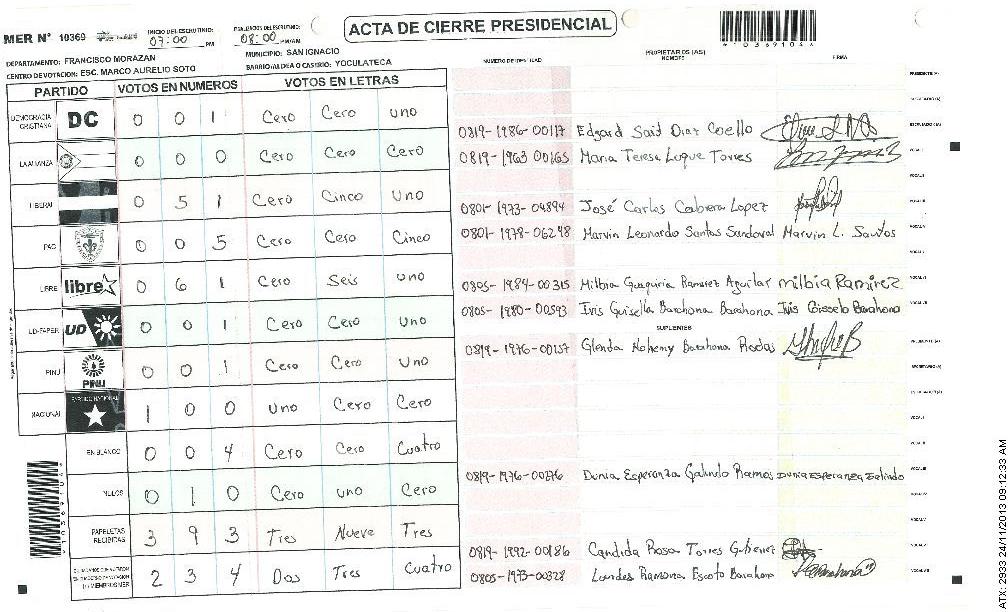 ACTA DE CIERRE PRESIDENCIAL
MER N° 10369
INICIO DEL ESCRUTINIO: 07:00 PM
FINALIZACION DEL ESCRUTINIO: 08:00 PM/AM
DEPARTAMENTO: FRANCISCO MORAZAN
MUNICIPIO: SAN IGNACIO
CENTRO DE VOTACION: ESC. MARCO AURELIO SOTO
BARRIO/ALDEA O CASERIO: YOCULATECA
PARTIDO VOTOS EN NUMEROS VOTOS EN LETRAS
DEMOCRACIA CRISTIANA DC 0 0 1 Cero Cero uno
LA ALIANZA 0 0 0 Cero Cero Cero
LIBERAL 0 5 1 Cero Cinco Uno
PAC 0 0 5 Cero Cero Cinco
LIBRE libre 0 6 1 Cero Seis uno
UD-FAPER UD 0 0 1 Cero Cero Uno
PINU PINU 0 0 1 Cero Cero Uno
NACIONAL PARTIDO NACIONAL 1 0 0 uno Cero Cero
EN BLANCO 0 0 4 Cero Cero Cuatro
NULOS 0 1 0 Cero uno Cero
PAPELETAS RECIBIDAS 3 9 3 Tres Nueve Tres
2 3 4 Dos Tres Cuatro
NUMERO DE IDENTIDAD PROPIETARIOS (AS) NOMBRE FIRMA
PRESIDENTE (A)
SECRETARIO (A)
0819-1986-00117 Edgard Said Diaz Coello ESCRUTADOR (A)
0819-1963 00165 Maria Teresa Luque Torres VOCAL I
0801-1973-04894 José Carlos Cabrera Lopez VOCAL III
0801-1978-06248 Marvin Leonardo Santos Sandoval Marvin L. Santos VOCAL IV
VOCAL V
0805-1984-00315 Milbia Ramirez Aguilar milbia Ramirez VOCAL VI
0805-1980-00593 Ivis Guisella Barahona Barahona Ivis Gissela Barahona
SUPLENTES
0819-1976-00157 Glenda Nohemy Barahona Rodas PRESIDENTE (A)
SECRETARIO (A)
ESCRUTADOR (A)
VOCAL I
VOCAL II
0819-1976-00276 Dunia Esperanza Galindo Ramos Dunia Esperanza Galindo VOCAL III
VOCAL IV
VOCAL V
0819-1992-00186 Candida Rosa Torres Gutierrez
0805-1973-00328 Lourdes Ramona Escoto Barahona
ATX: 2933 24/11/2013 09:12:33 AM